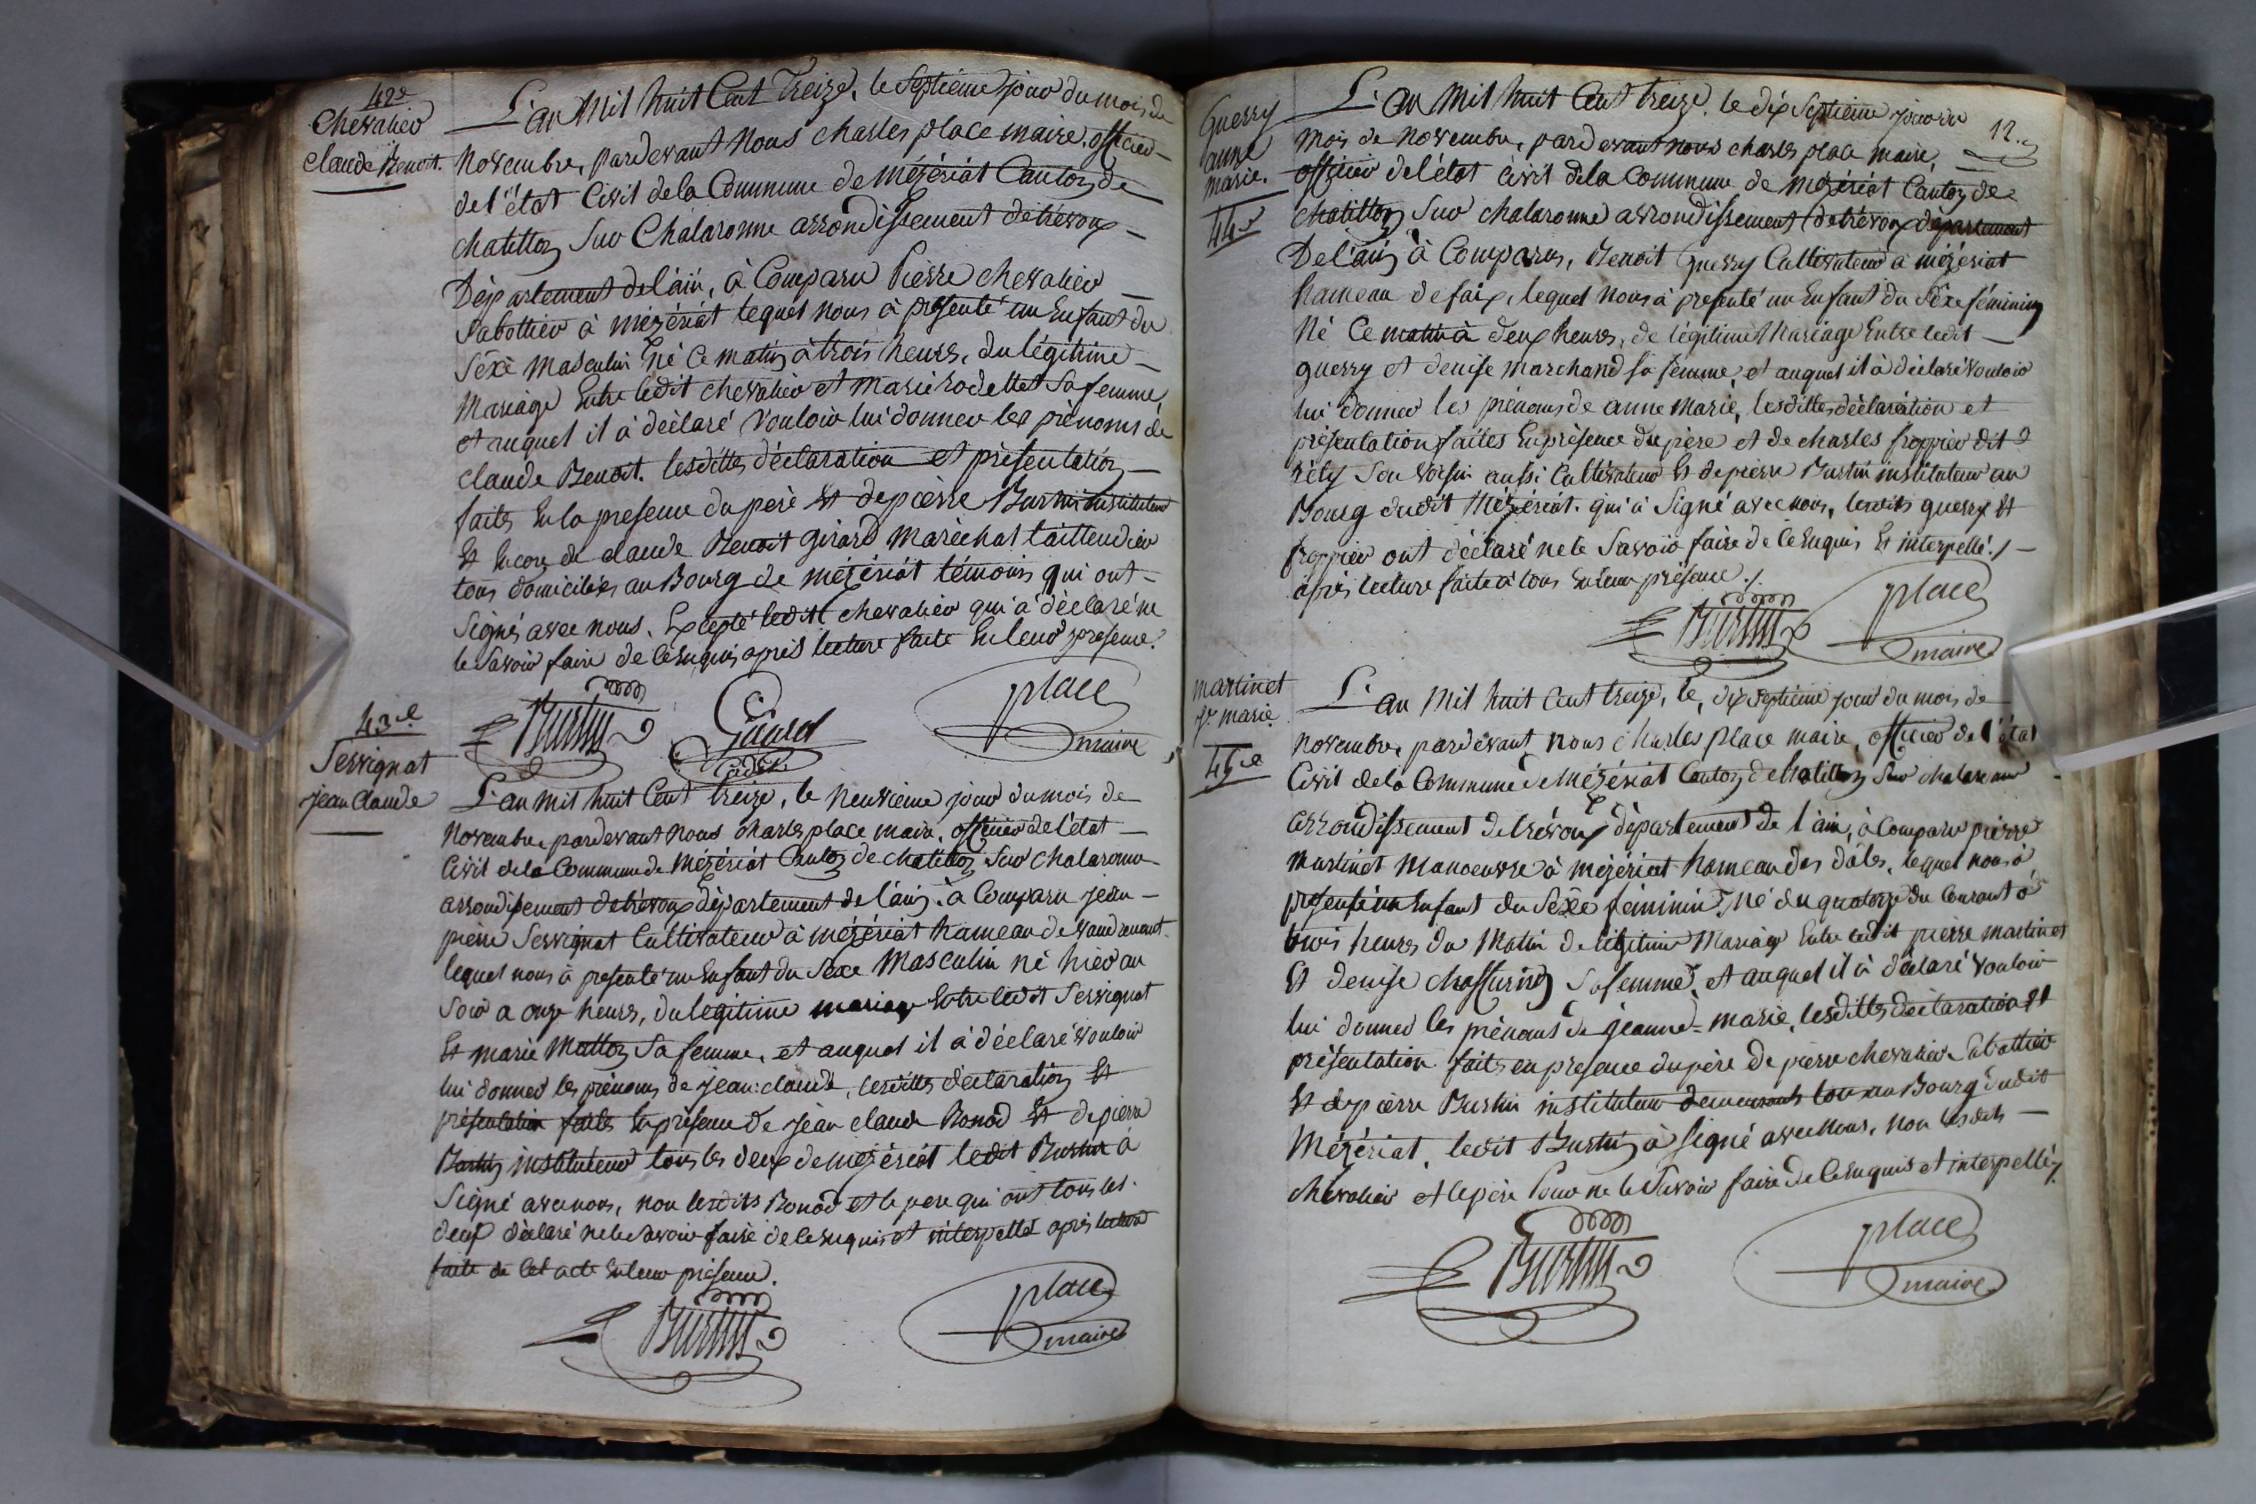 42e
Chevalier
Claude Benoit.
L'an Mil huit Cent Treize, le Septieme jour du mois de
Novembre, pardevant Nous Charles place maire, officier
de l'état Civil de la Commune de mézériat Canton de
chatillon Sur Chalaronne arrondissement de trévoux
Département de l'ain, à Comparu Pierre chevalier
Sabottier à mézériat lequel nous à présenté un Enfant du
Séxe Masculin Né Ce matin à trois heures, du légitime
Mariage Entre ledit Chevalier et Marie rodellet Sa femme,
et auquel il à déclaré Vouloir lui donner les prénoms de
Claude Benoit. lesdittes déclaration et présentation
faites En la presence du pere Et de pierre Burtin instituteur
Et Encore de claude Benoit girard Maréchal taillendier
tous domiciliés au Bourg de mézériat témoins qui ont
Signés avec nous. Excepté ledit chevalier qui à déclaré ne
le Savoir faire de ce Enquis après lecture faite En leur presence.
Burtin Girard cadet place maire
43e
Servignat
jean Claude
L'an mil huit Cent treize, le neuvieme jour du mois de
Novembre, pardevant nous charles place maire, officier de l'état
Civil de la Commune de Mézériat Canton de chatillon Sur chalaronne
arrondissement de trévoux département de l'ain, à Comparu jean
pierre Servignat Cultivateur à mézériat hameau de
lequel nous à presenté un Enfant du Sexe Masculin né hier au
Soir a onze heures, du légitime mariage Entre ledit Servignat
Et marie Mallon Sa femme, et auquel il à déclaré Vouloir
lui donner les prénoms de jean claude, lesdittes déclaration Et
présentation faites En présence de jean claude Bonod Et de pierre
Burtin instituteur tous les deux de mézériat ledit Burtin à
Signé avec nous, non lesdits Bonod et le pere qui ont tous les
deux déclaré ne le Savoir faire de ce Enquis et interpellé après lecture
faite de Cet acte En leur présence.
Burtin place maire
Guerry
anne
marie.
44e
12.
L'an Mil huit Cent treize, le dix Septieme jour du
Mois de Novembre, pardevant nous charles place maire,
officier de l'état civil de la Commune de mézériat Canton de
chatillon Sur chalaronne arrondissement de trévoux département
De l'ain à Comparu, Benoit guerry Cultivateur à mézériat
hameau de faix, lequel Nous à présenté un Enfant du Séxe féminin
Né Ce matin à deux heures, de légitime Mariage Entre ledit
guerry et denise marchand sa femme, et auquel il à déclaré vouloir
lui donner les prénoms de anne Marie, lesdittes déclaration et
présentation faites En présence du père et de charles froppier dit
réty Son Voisin aussi Cultivateur Et de pierre Burtin instituteur au
Bourg dudit Mézériat. qui à Signé avec nous, lesdits guerry Et
froppier ont déclaré ne le Savoir faire de Ce Enquis Et interpellé.
après lecture faite à tous En leur présence.
Burtin place maire
martinet
Je marie
45e
L'an Mil huit Cent treize, le dix septieme jour du mois de
Novembre, pardevant nous Charles place maire, officier de l'état
Civil de la Commune de Mézériat Canton de chatillon Sur chalaronne
arrondissement de trévoux département de l'ain, à Comparu pierre
Martinet Manoeuvre à mézériat hameau des dâles, lequel nous à
présenté un Enfant du Séxe féminin Né du quatorze du Courant à
trois heures du Matin de légitime Mariage Entre ledit pierre martinet
Et denise Sa femme, et auquel il à déclaré Vouloir
lui donner les prénoms de jeanne-marie, lesdittes déclaration Et
présentation faites en présence du père de pierre chevalier Sabottier
Et de pierre Burtin instituteur demeurants tous au Bourg dudit
Mézériat, ledit Burtin à Signé avec nous, non lesdits
chevalier et le père Pour ne le Savoir faire de Ce Enquis et interpellé.
Burtin place maire